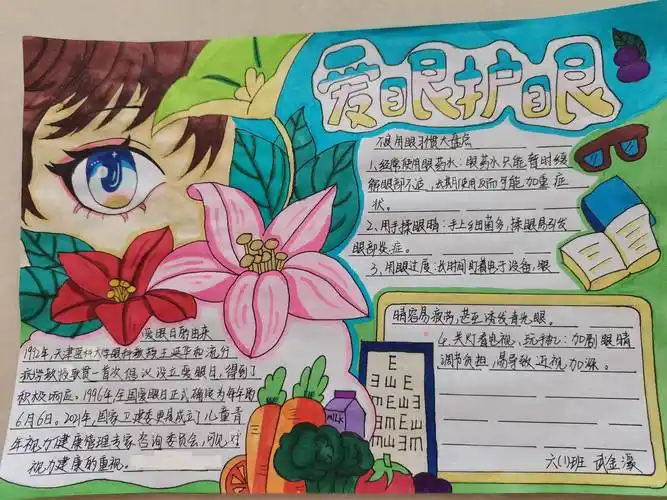 爱眼护眼
不良用眼习惯大盘点
1、经常使用眼药水：眼药水只能暂时缓
解眼部不适，长期使用反而可能加重症
状。
2、用手揉眼睛：手上细菌多，揉眼易引发
眼部炎症。
3、用眼过度：长时间盯着电子设备，眼
睛容易疲劳，甚至诱发青光眼。
4、关灯看电视、玩手机：加剧眼睛
调节负担，易导致近视加深。
爱眼日的由来
1992年，天津医科大学眼科教授王延华和流行
病学教授耿贯一首次倡议设立爱眼日，得到了
积极响应。1996年，全国爱眼日正式确定为每年的
6月6日。2021年，国家卫健委更是成立了儿童青
少年视力健康管理专家咨询委员会，可见对
视力健康的重视。
MILK
E
E Ш E
m E ш E
E m E
m E
六(1)班